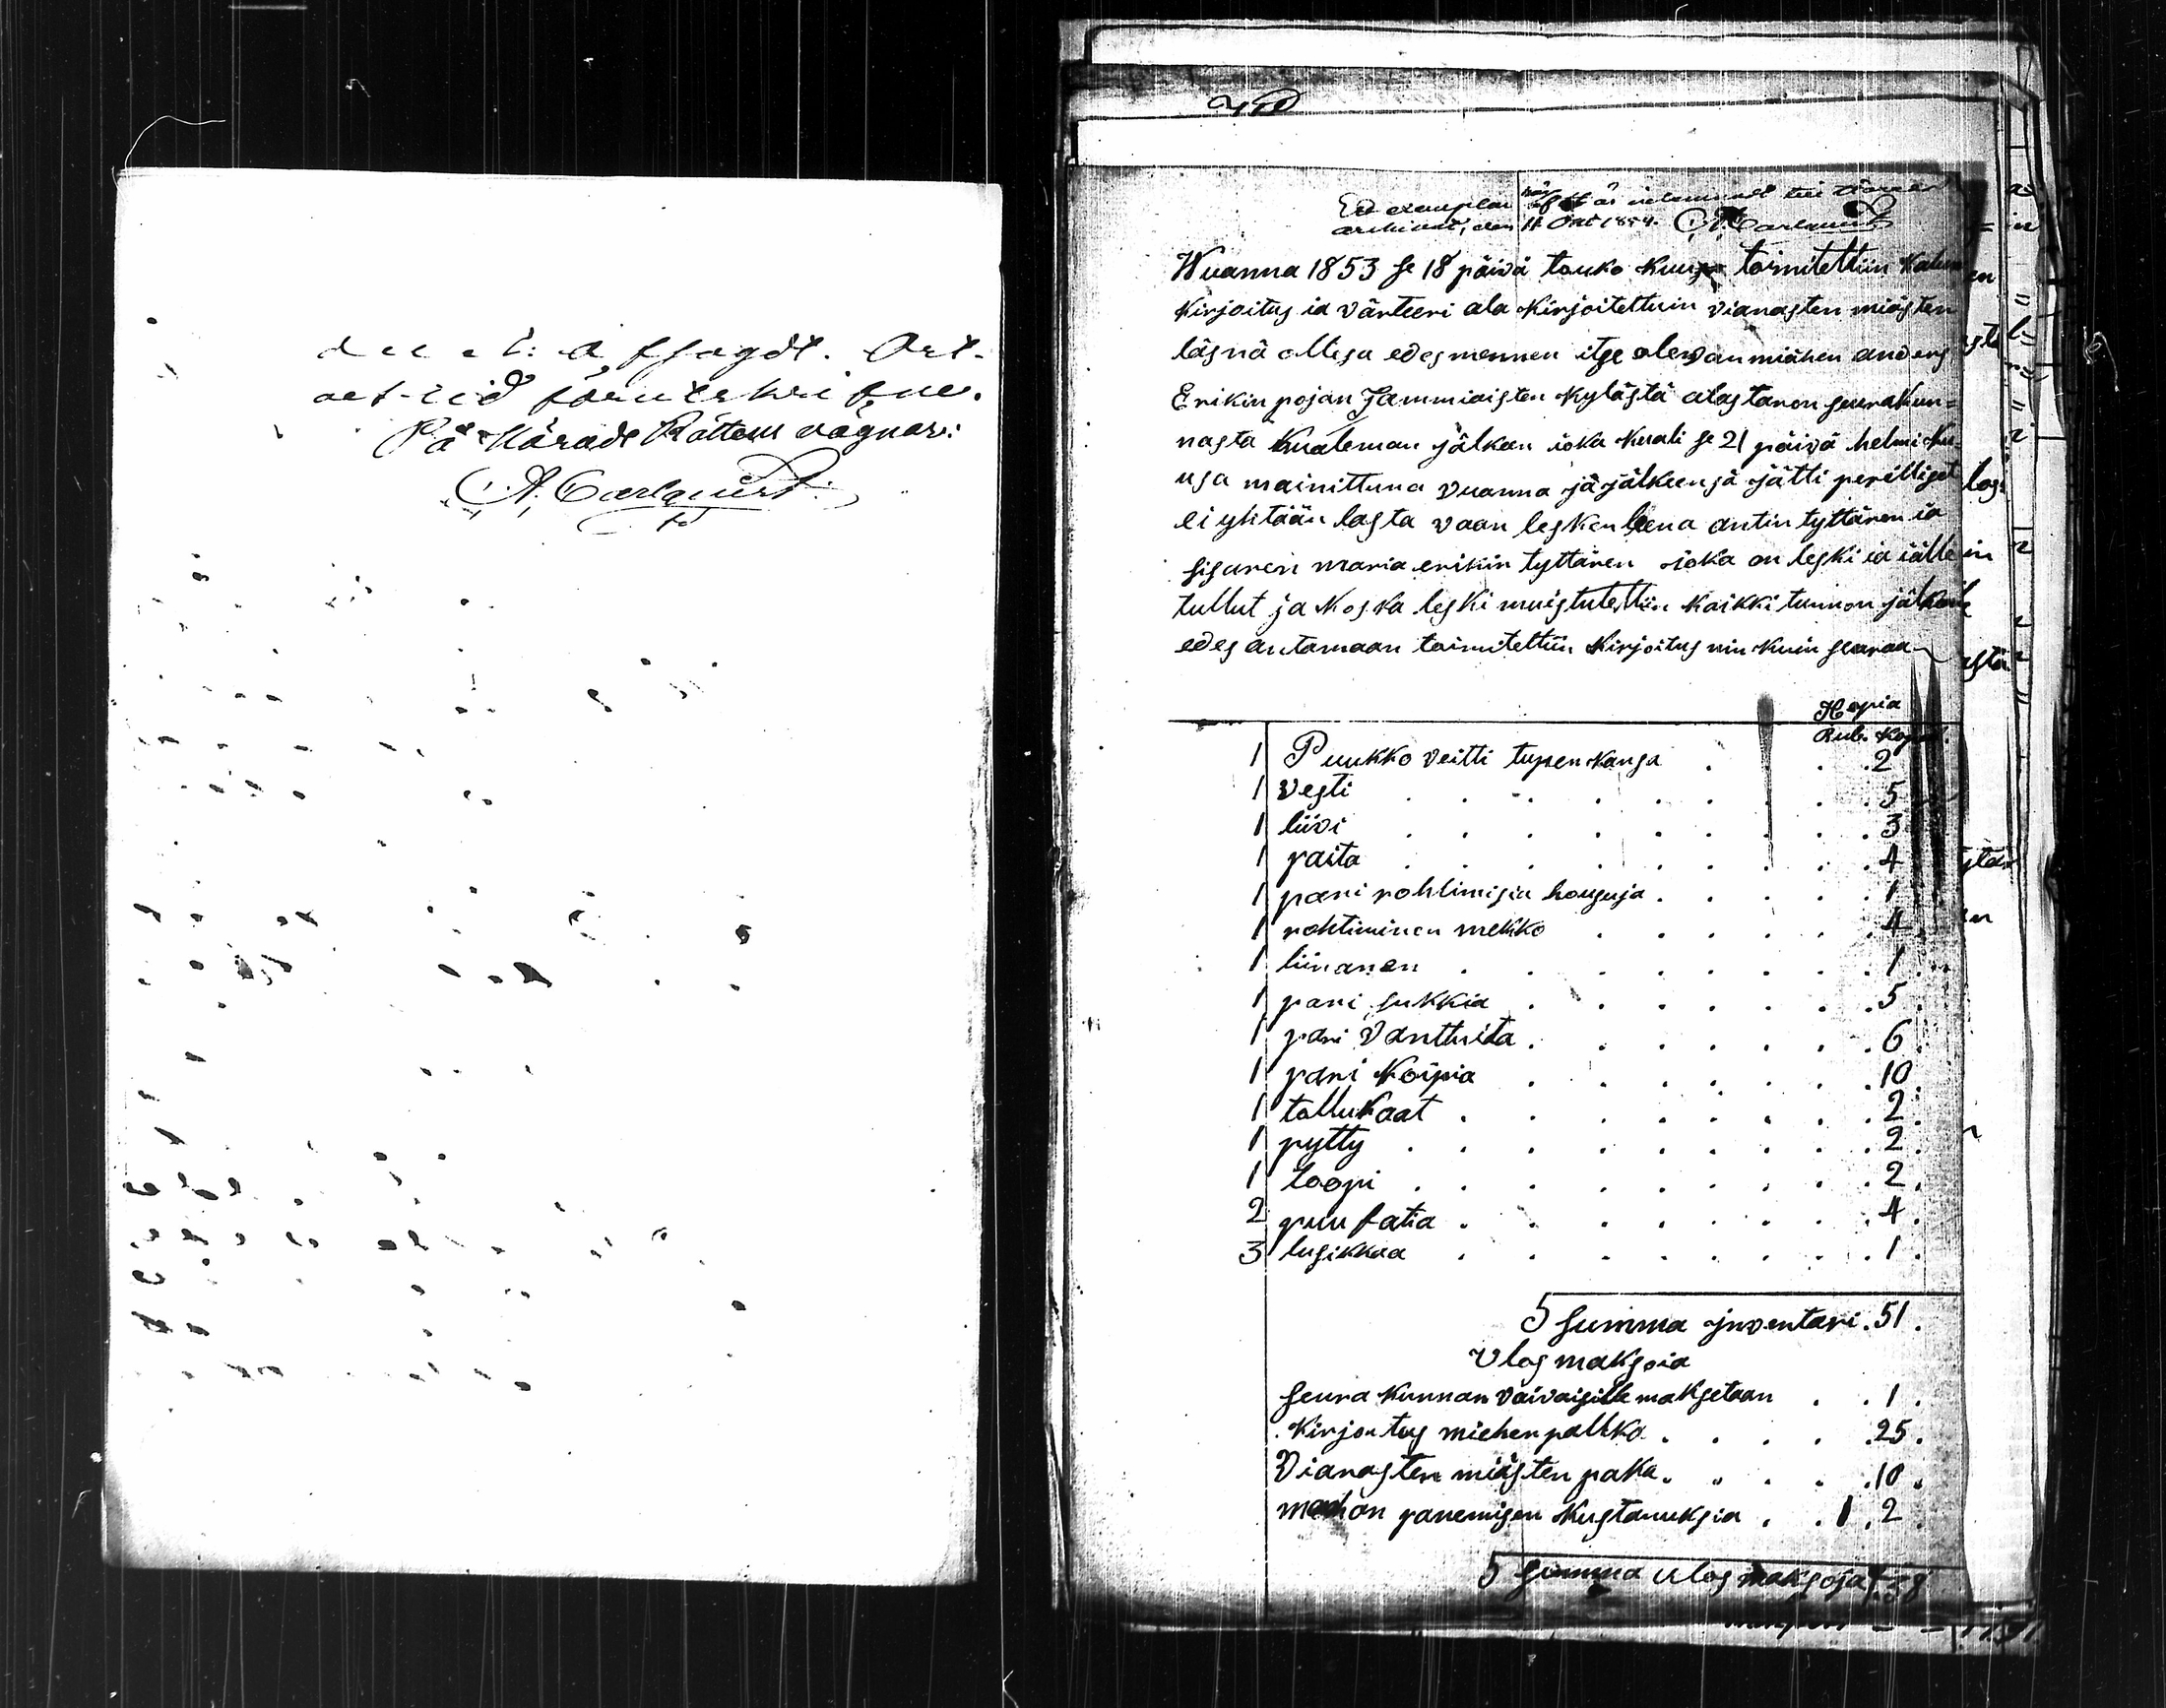 afsagdt. Ort-
och tid förut skrifne.
På Härads Rättens vägnar:
A. Carlquist
Ett exemplar här af är inlemnadt till
archivet, den 11 Oct 1854. A. Carlquist
Wuanna 1853 se 18 päivä touko kuusa toimitettiin kalun
kirjoitus ia värteeri ala kirjoitettuin vianasten miästen
läsnä ollesa edesmennen itse alevan miähen anders
Erikin pojan Jammiaisten kylästä alastaron seurakun=
nasta kualeman jälkän ioka kuali se 21 päivä helmi ku
usa mainittuna vuanna ja jälkeensä jätti perilliset
ei yhtään lasta vaan lesken leena antin tyttären ia
sisaren maria erikin tyttären ioka on leski ia iälle
tullut ja koska leski muistutettiin kaikki tunnon jälkeen
edes antamaan toimitettiin kirjoitus nin kuin seuraa
Hopia
Rub. Kop.
1 Puukko veitti tupen kansa . . . 2
1 vesti . . . 5
1 liivi . . . 3
1 paita . . . 4
1 pari rohtimisia housuja . . . 1
1 rohtiminen mekko . . . 4
1 liinanen . . . 1
1 pari sukkia . . . 5
1 pari vanttuita . . . 6
1 pari koipia . . . 10
1 tallukaat . . . 2
1 pytty . . . 2
1 toopi . . . 2
2 puu fatia . . . 4
3 lusikkaa . . . 1
S summa inventari . 51 .
Vlos maksoia
seura kunnan vaivaisille maksetaan . . 1 .
kirjoitus miehen palkka . . . 25 .
Vianasten miästen paka . . . 10 .
mahan panemisen kustanuksia . . 1 . 2
S summa ulos maksoja 1.38